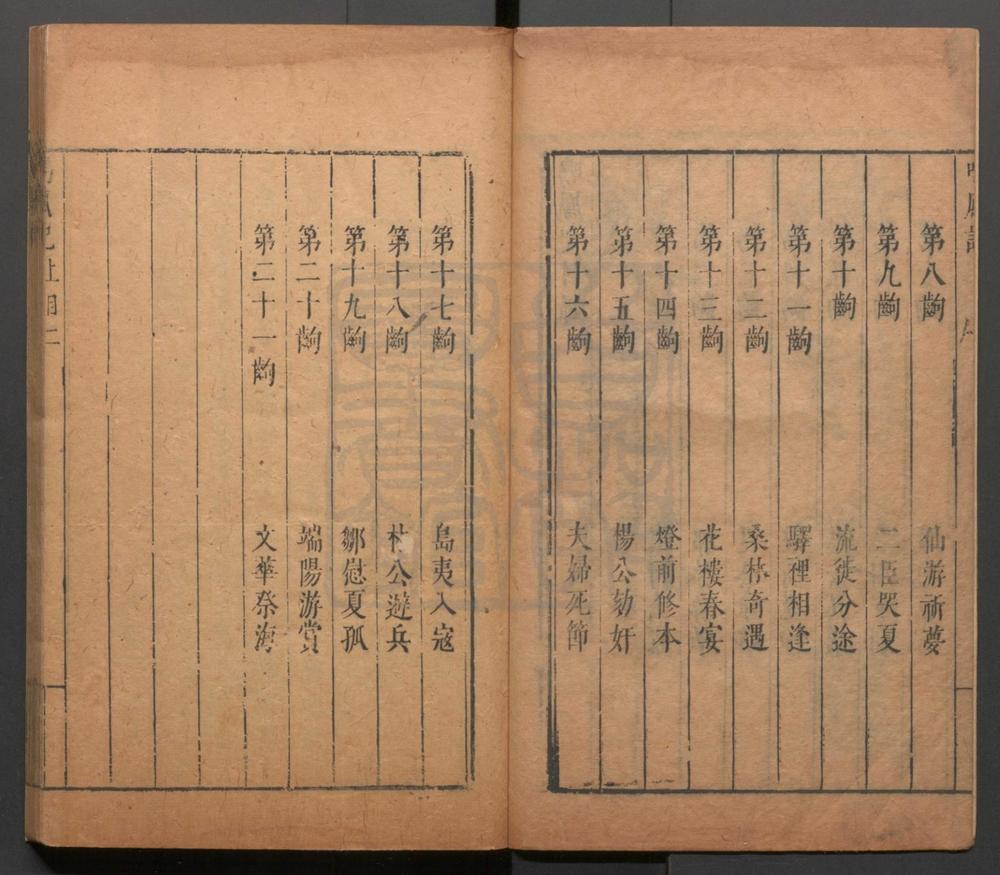 第八齣 仙游祈夢
第九齣 二臣哭夏
第十齣 流徙分途
第十一齣 驛裡相逢
第十二齣 桑林奇遇
第十三齣 花樓春宴
第十四齣 燈前修本
第十五齣 楊公劾奸
第十六齣 夫婦死節
第十七齣 島夷入寇
第十八齣 林公遊兵
第十九齣 鄒慰夏孤
第二十齣 端陽游賞
第二十一齣 文華祭海